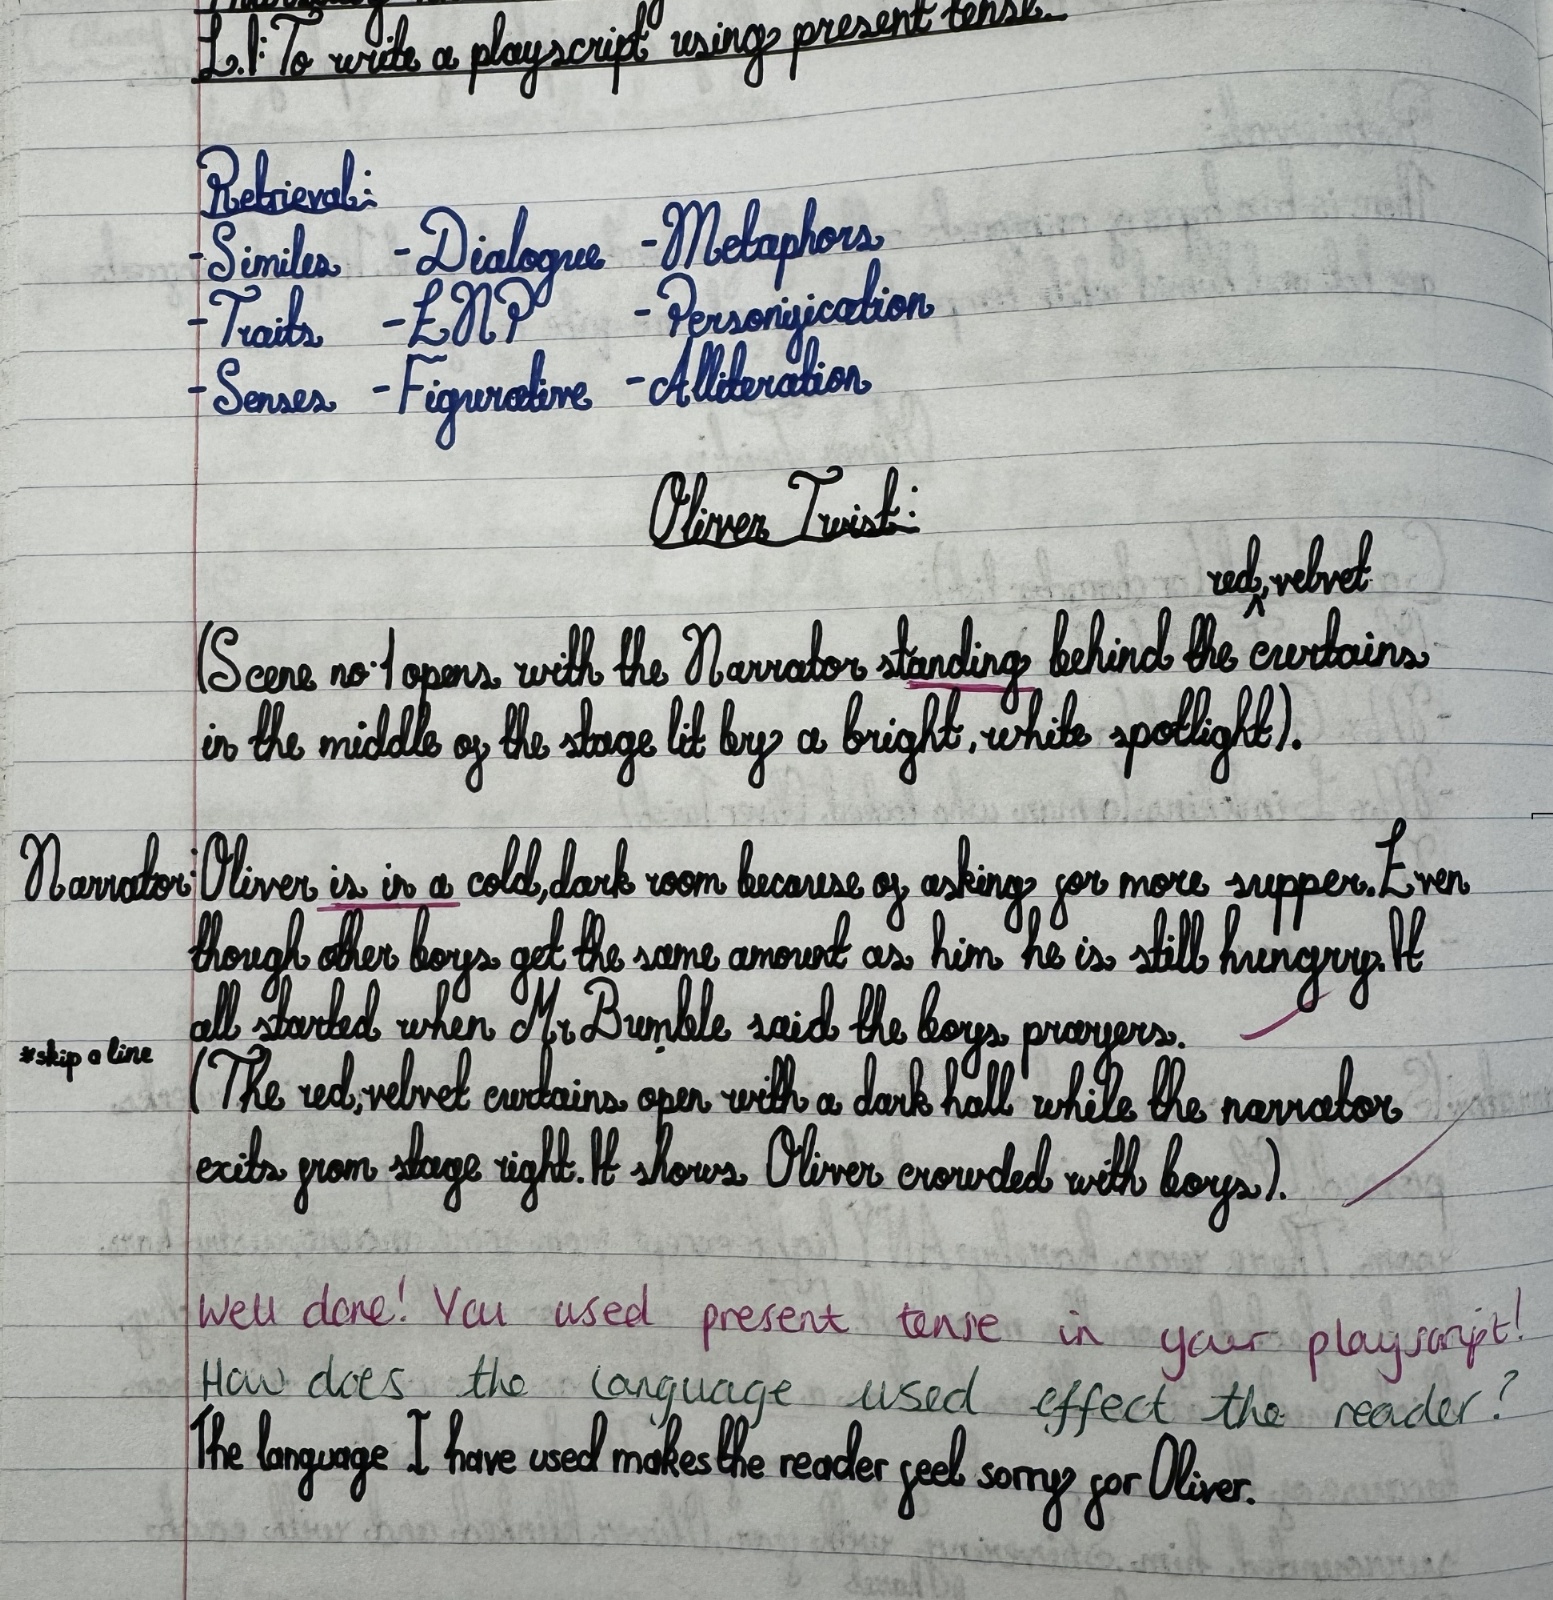 L.I: To write a playscript using present tense.
Retrieval:
-Similes -Dialogue -Metaphors
-Traits -ENP -Personification
-Senses -Figurative -Alliteration
Oliver Twist:
red, velvet
(Scene no.1 opens with the Narrator standing behind the ^ curtains
in the middle of the stage lit by a bright, white spotlight).
Narrator: Oliver is in a cold, dark room because of asking for more supper. Even
though other boys get the same amount as him he is still hungry. It
all started when Mr Bumble said the boys prayers.
*skip a line
(The red, velvet curtains open with a dark hall while the narrator
exits from stage right. It shows Oliver crowded with boys).
Well done! You used present tense in your playscript!
How does the language used effect the reader?
The language I have used makes the reader feel sorry for Oliver.